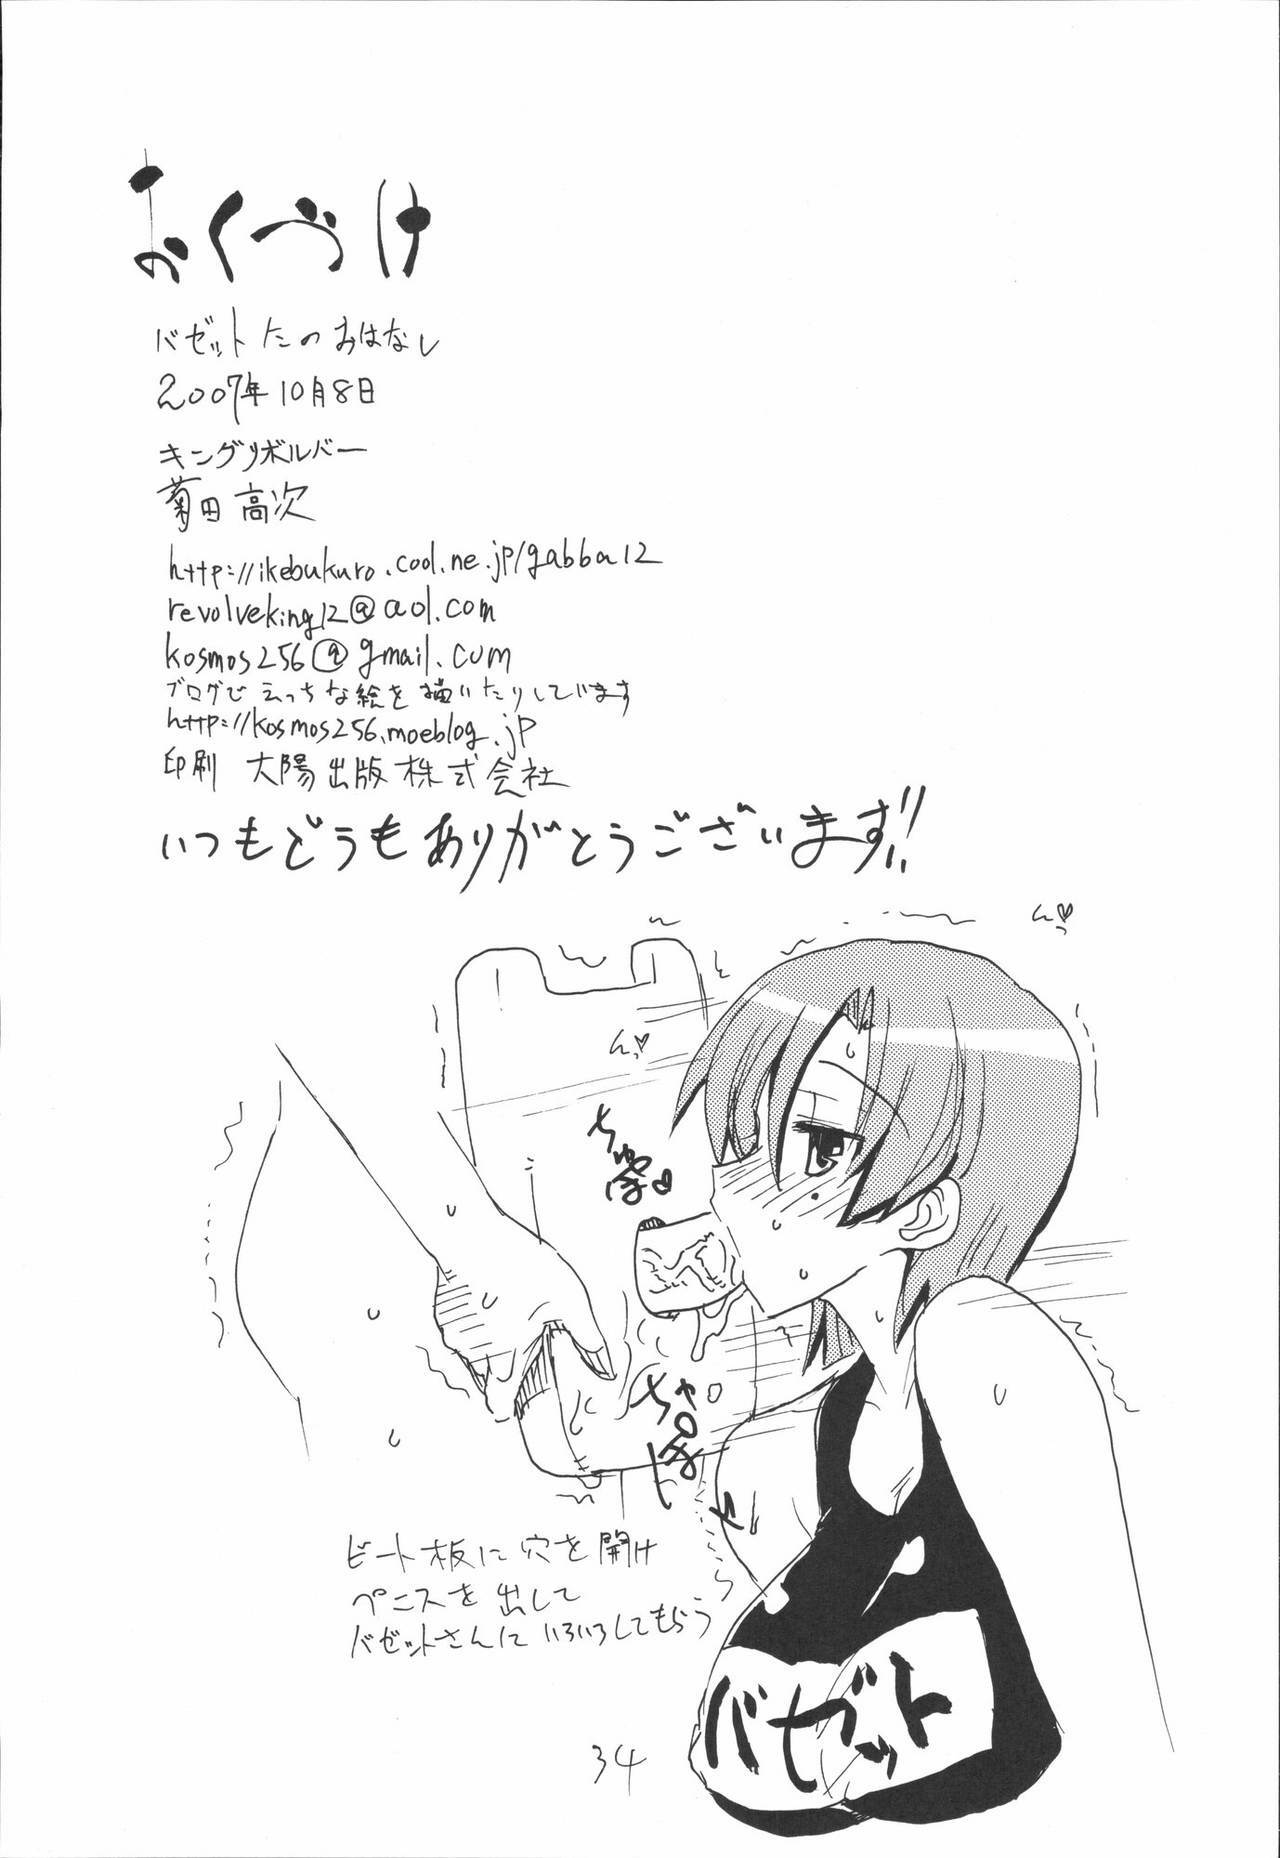 おくづけ
バゼットたのおはなし
2007年10月8日
キングリボルバー
菊田高次
http://ikebukuro.cool.ne.jp/gabba12
revolveking12@aol.com
kosmos256@gmail.com
ブログでえっちな絵を描いたりしています
http://kosmos256.moeblog.jp
印刷 大陽出版株式会社
いつもどうもありがとうございます!!
んっ♡
んっ♡
ちゅぽ♡
ビート板に穴を開け
ペニスを出して
バゼットさんにいろいろしてもらう
バゼット
34